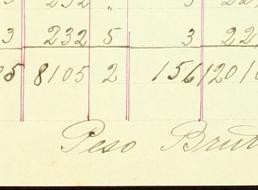 3 232 5 3 22
05 8105 2 156 12010
Peso Brut